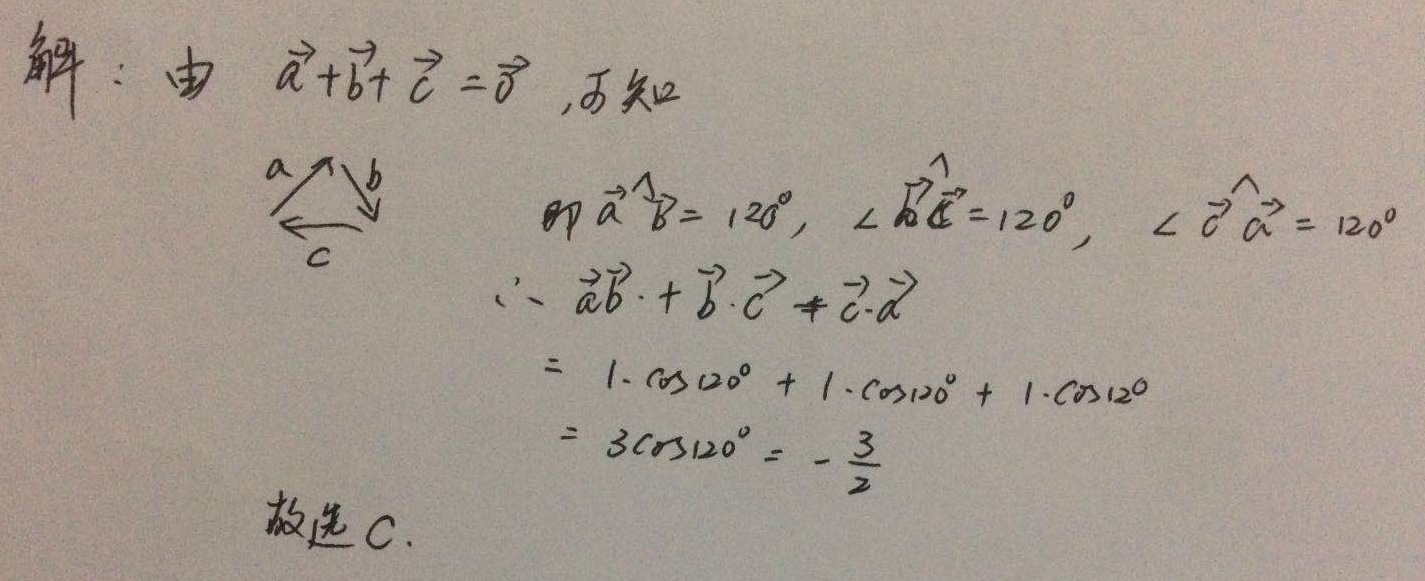 解：由 a⃗+b⃗+c⃗=0⃗,可知
a b
c
即 a⃗^b⃗=120°, ∠b⃗^c⃗=120°, ∠c⃗^a⃗=120°
∴ a⃗b⃗·+b⃗·c⃗+c⃗·a⃗
= 1·cos120°+1·cos120°+1·cos120
= 3cos120°=-3/2
故选C.